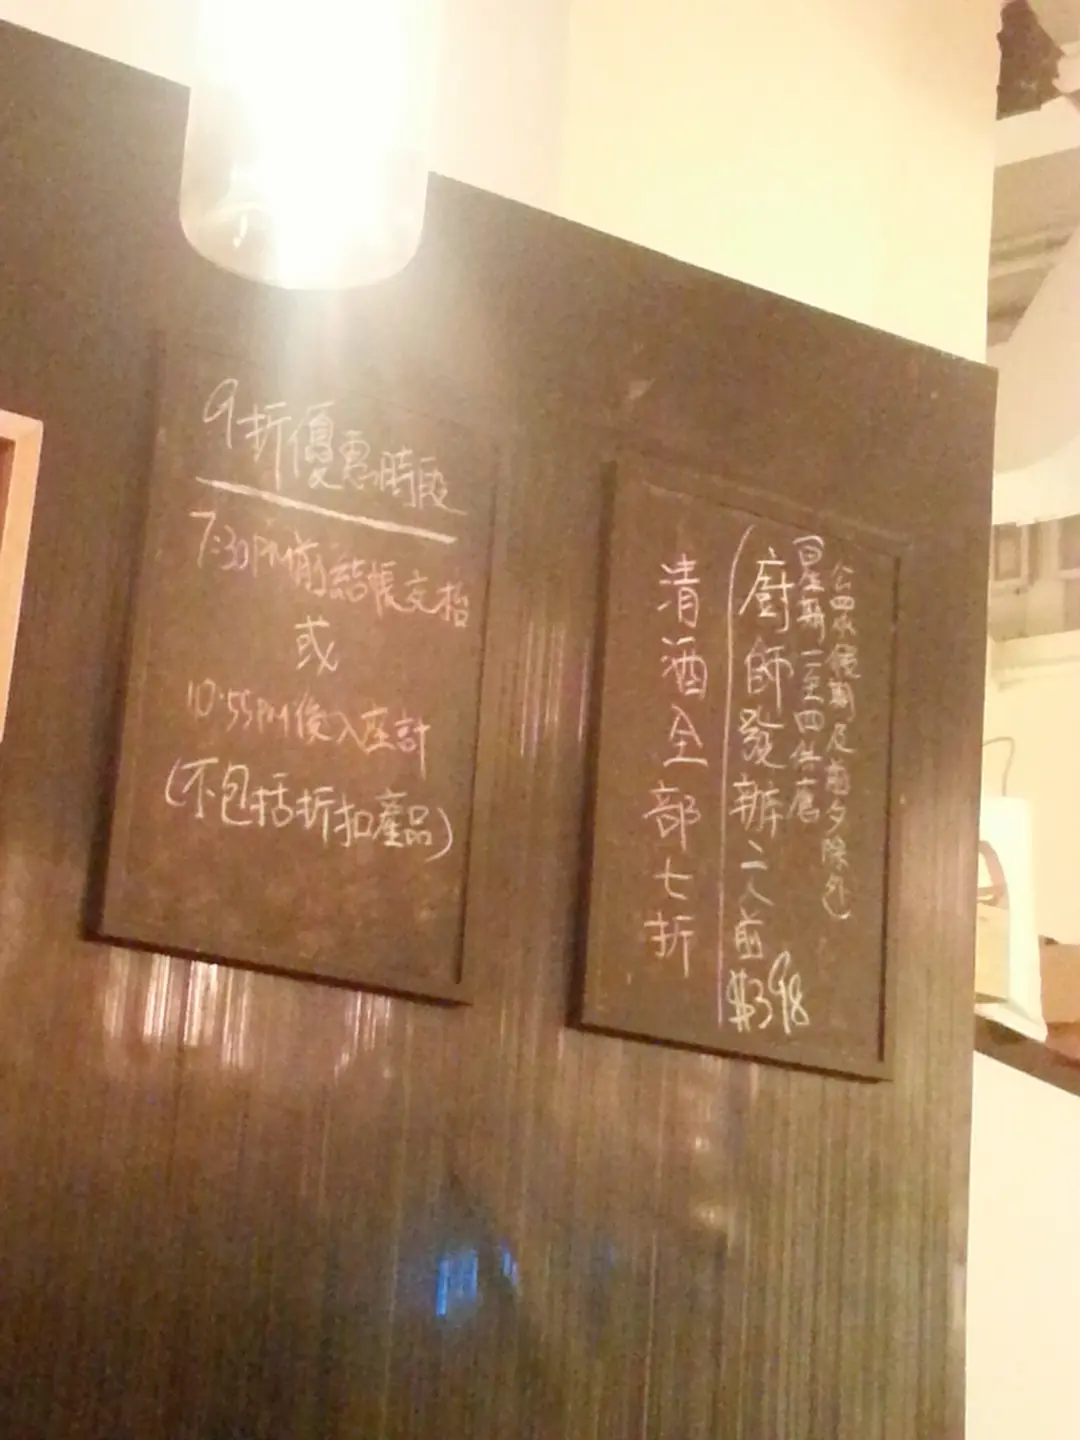 9折優惠時段
7:30PM前結帳交枱
或
10:55PM後入座計
(不包括折扣產品)
公眾假期及前夕除外)
(星期一至四供應
廚師發辦二人前$398
清酒全部七折